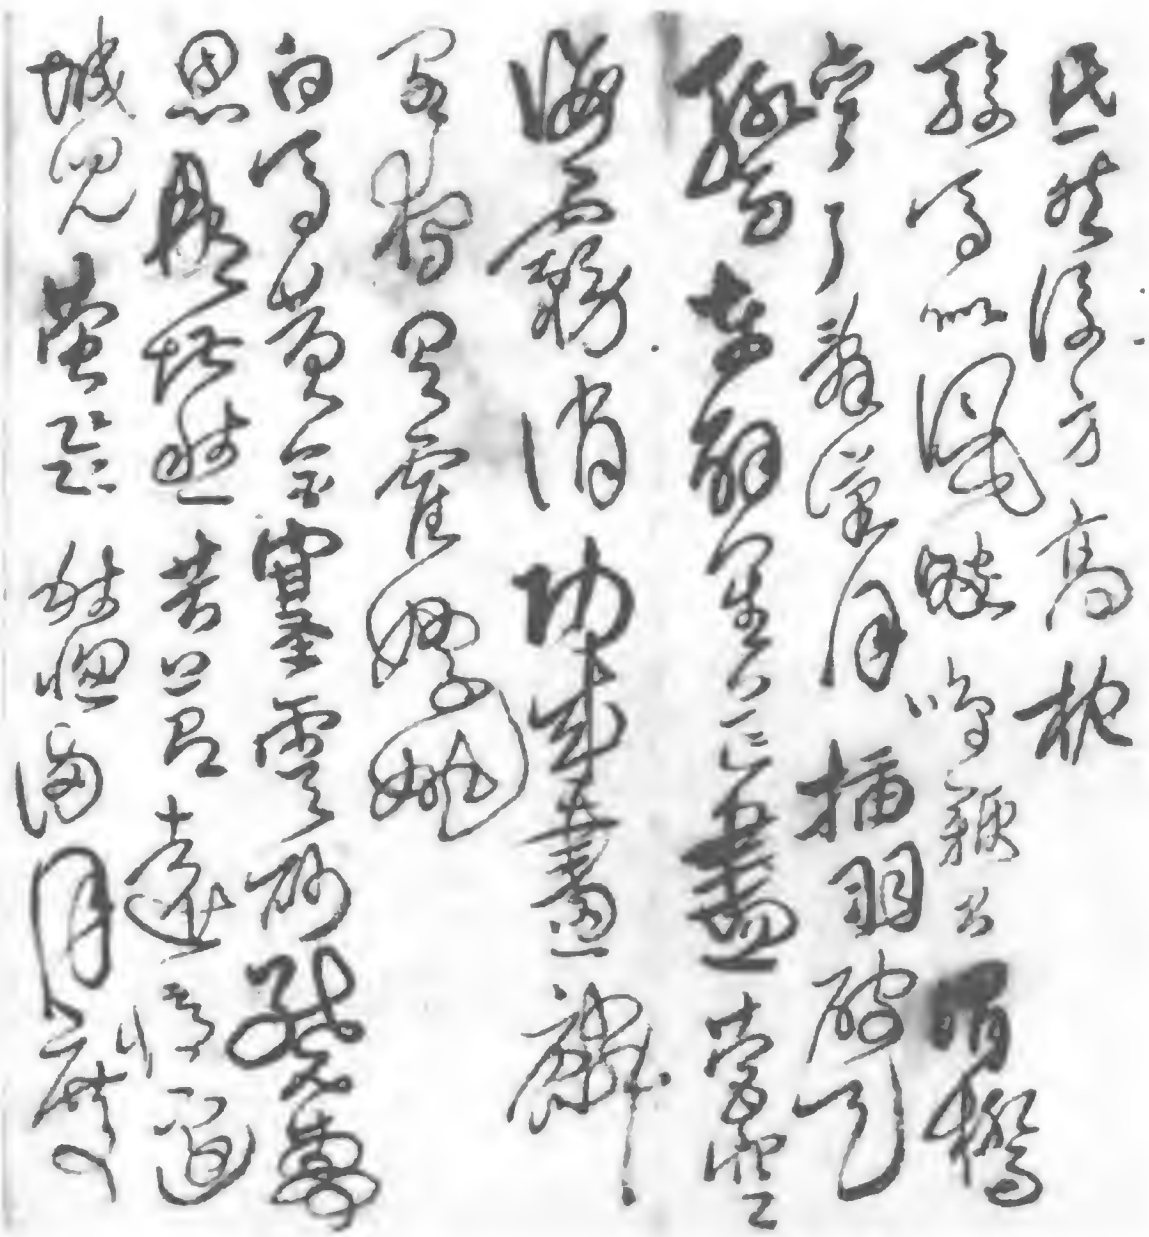 氏然後方高枕
駿馬似風飈鳴鞭出渭橋
彎弓辭漢月插羽破天
驕陣解星芒盡營空
海霧消功成畫麟
閣獨有霍嫖姚
白馬黃金塞雲砂繞夢
思那堪愁苦節遠憶邊
城兒螢飛秋窗滿月度